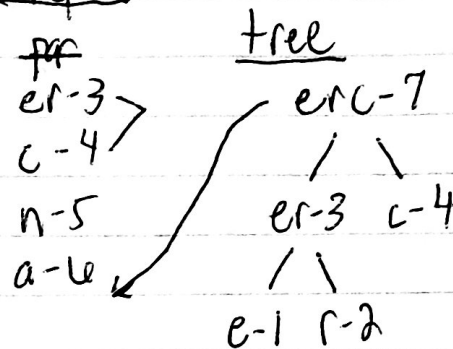 par
er-3
c-4
n-5
a-6
tree
erc-7
er-3 c-4
e-1 r-2